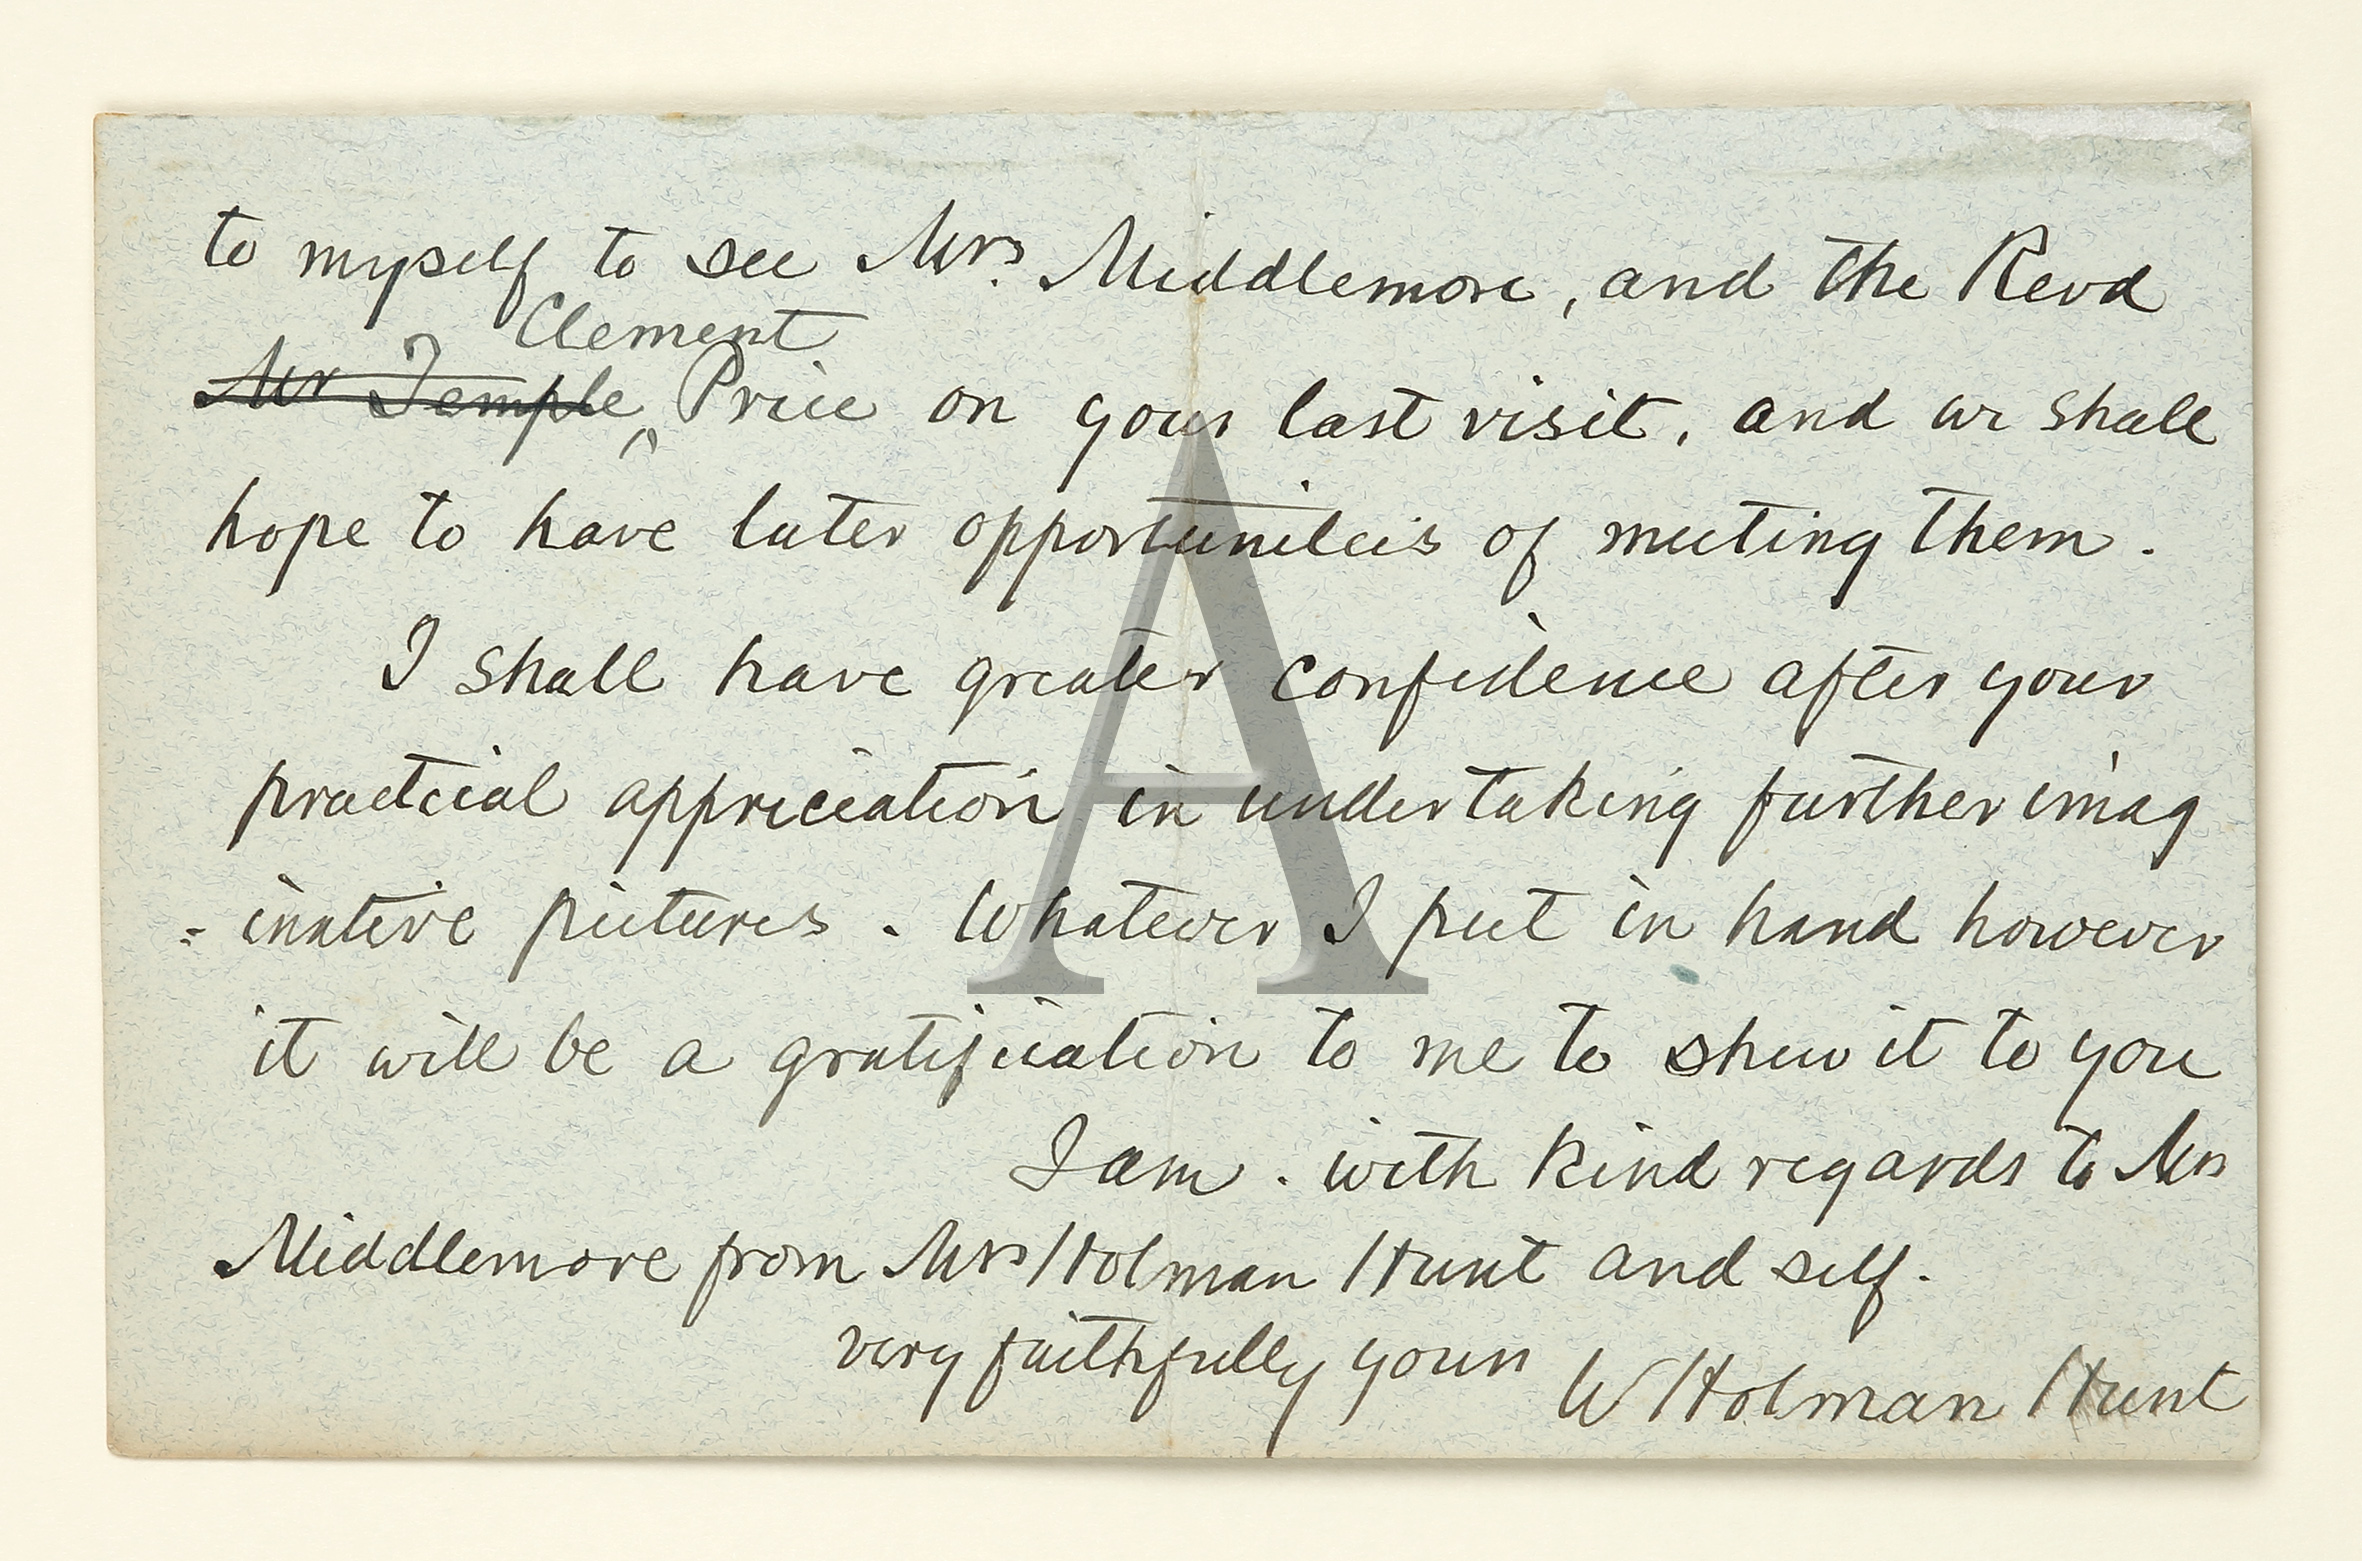 to myself to see Mrs. Middlemore, and the Revd
Clement
Mr Temple, Price on your last visit, and we shall
hope to have later opportunities of meeting them.
I shall have greater confidence after your
practical appreciation in undertaking further imag
= inative pictures. Whatever I put in hand however
it will be a gratification to me to shew it to you
I am. with kind regards to Mrs
Middlemore from Mrs Holman Hunt and self.
very faithfully yours W Holman Hunt
A